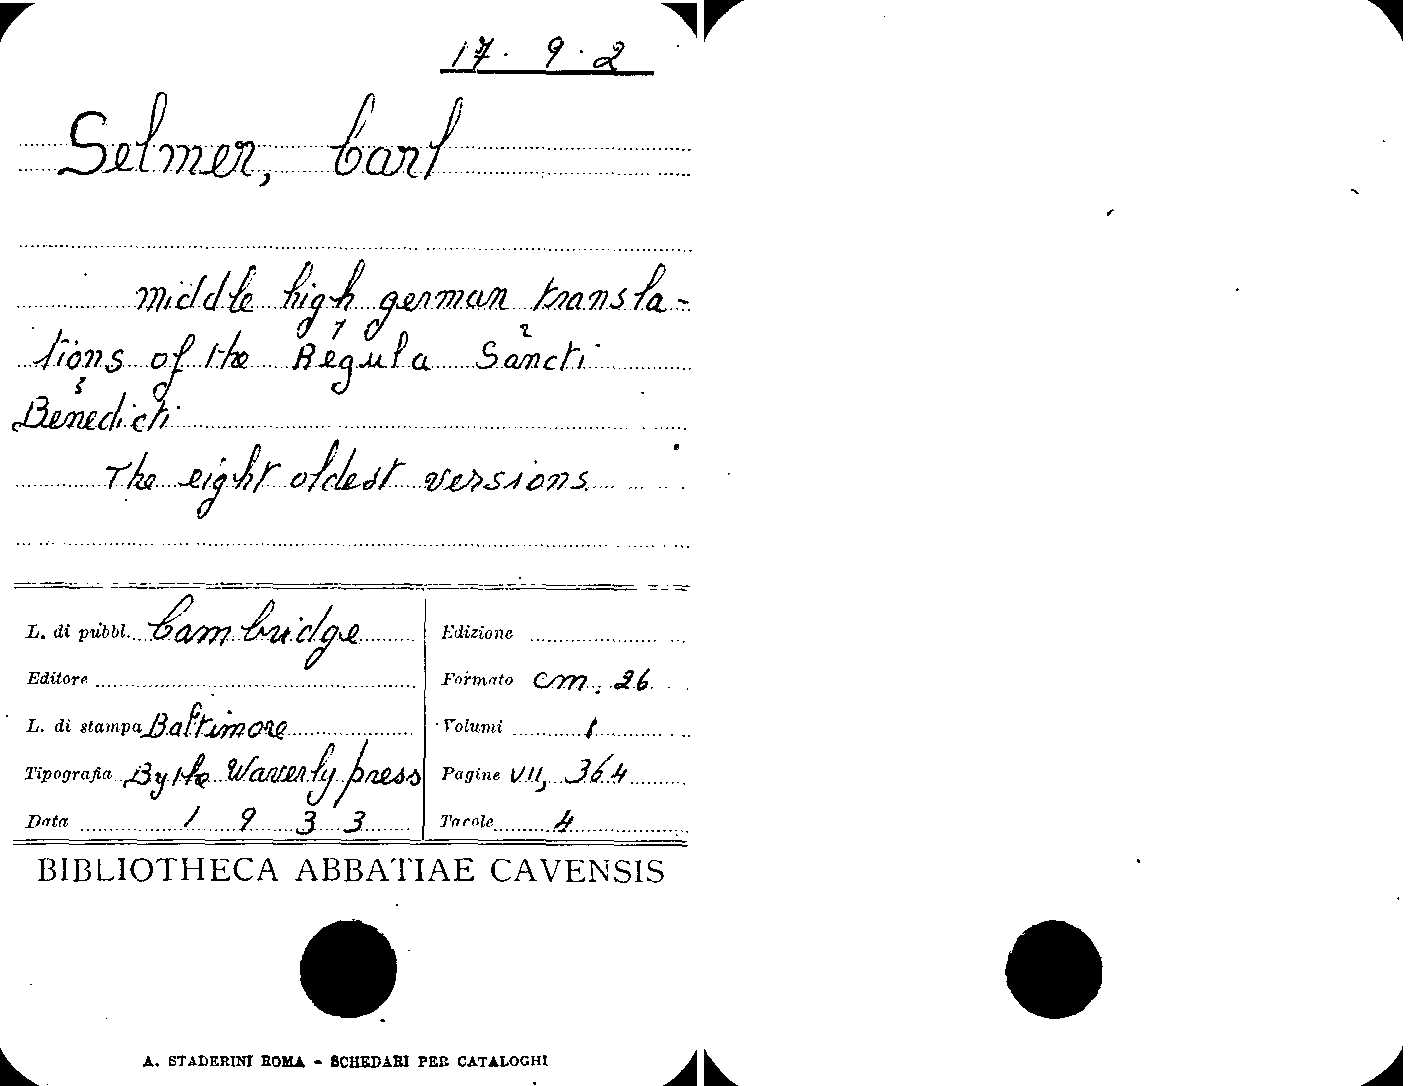 17. 9. 2
Selmer, Carl
middle high german transla-
tions of the Regula Sancti
1 2
Benedicti
3
The eight oldest versions
L. di pubbl. Cambridge
Editore
L. di stampa Baltimore
Tipografia By the Waverly press
Data 1933
Edizione
Formato cm. 26
Volumi 1
Pagine VII, 364
Tavole 4
BIBLIOTHECA ABBATIAE CAVENSIS
A. STADERINI ROMA - SCHEDARI PER CATALOGHI